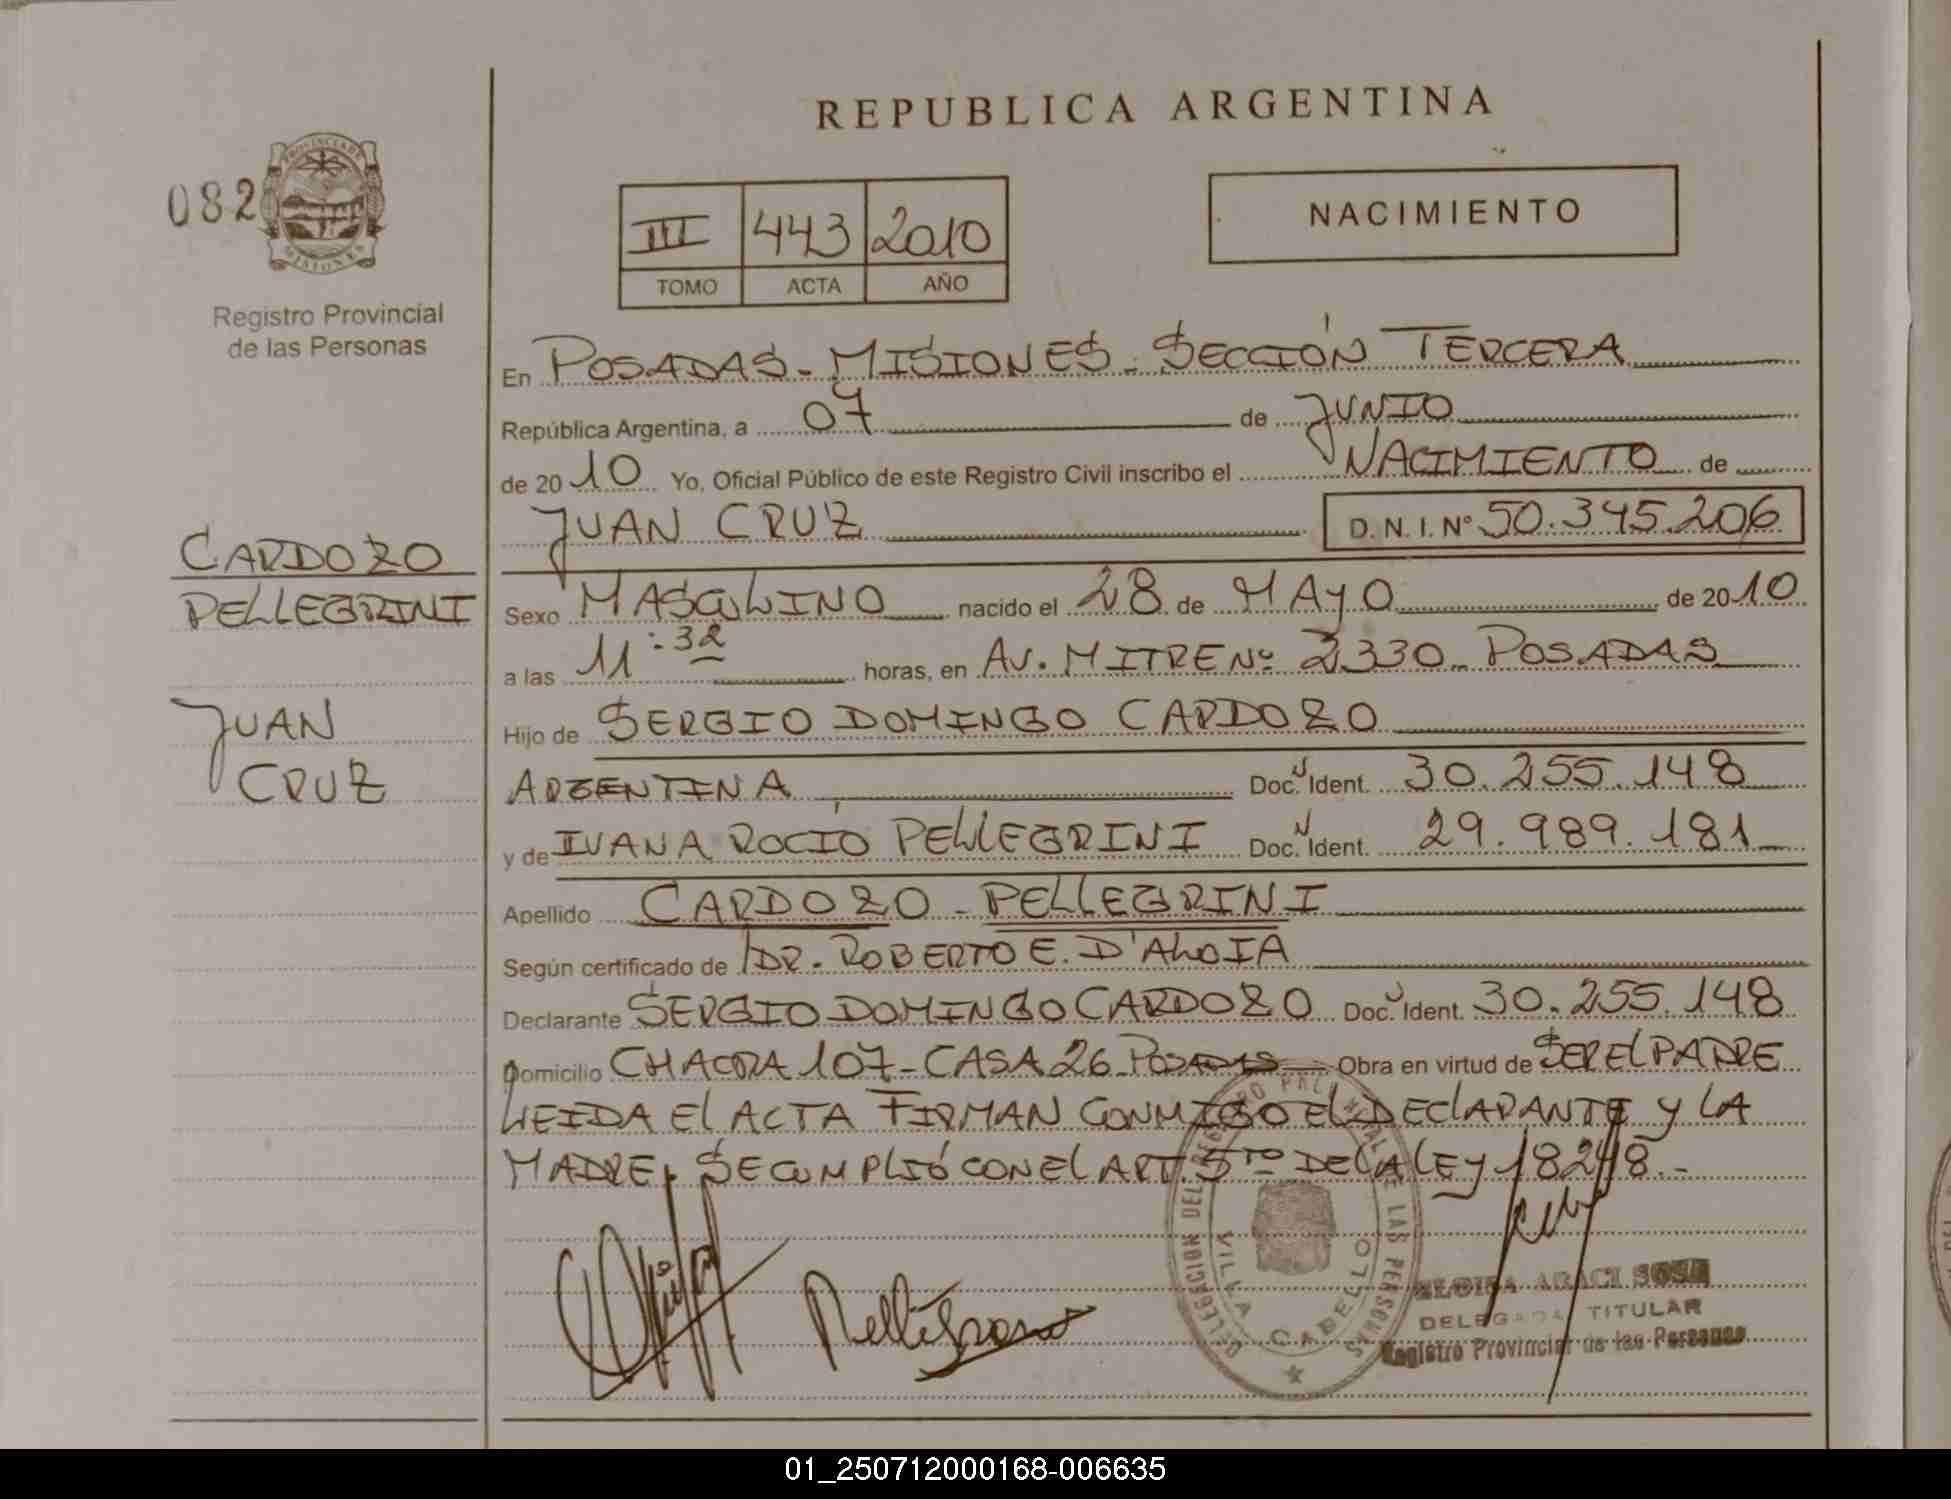 REPUBLICA ARGENTINA
082
PROVINCIA DE
MISIONES
Registro Provincial
de las Personas
III 443 2010
TOMO ACTA AÑO
NACIMIENTO
En POSADAS - MISIONES - SECCIÓN TERCERA
República Argentina, a 07 de JUNIO
de 2010 Yo, Oficial Público de este Registro Civil inscribo el NACIMIENTO de
JUAN CRUZ D. N. I. Nº 50.345.206
CARDOZO
PELLEGRINI
JUAN
CRUZ
Sexo MASCULINO nacido el 28 de MAYO de 2010
a las 11:32 horas, en AV. MITRE Nº 2330 - POSADAS
Hijo de SERGIO DOMINGO CARDOZO
ARGENTINA Doc. Ident. 30.255.148
y de IVANA ROCÍO PELLEGRINI Doc. Ident. 29.989.181
Apellido CARDOZO - PELLEGRINI
Según certificado de DR. ROBERTO E. D'ALOIA
Declarante SERGIO DOMINGO CARDOZO Doc. Ident. 30.255.148
Domicilio CHACRA 107 - CASA 26 - POSADAS - Obra en virtud de SER EL PADRE
LEIDA EL ACTA FIRMAN CONMIGO EL DECLARANTE Y LA
MADRE, SE CUMPLIÓ CON EL ART. 5to DE LA LEY 18248.-
DELEGACION DEL REGISTRO PROVINCIAL DE LAS PERSONAS
VILLA CABELLO
ELOISA ARACI SOSA
DELEGADA TITULAR
Registro Provincial de las Personas
01_250712000168-006635